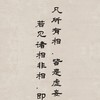 凡所有相皆是虛妄
若見諸相非相即